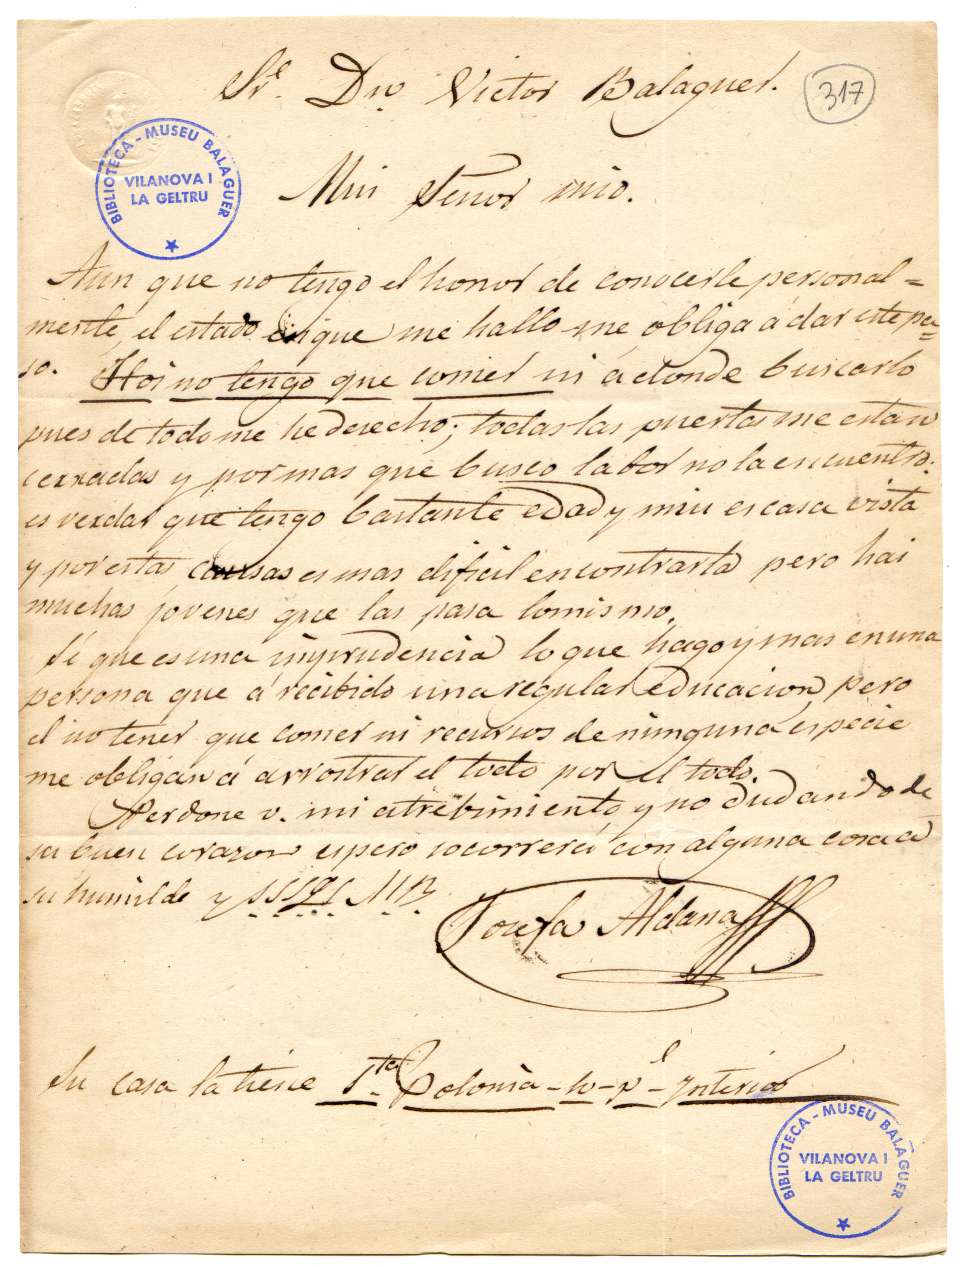 Sr. Dn. Victor Balaguer.
317
BIBLIOTECA - MUSEU BALAGUER
VILANOVA I
LA GELTRU
Mui Señor mio.
Aun que no tengo el honor de conocerle personal=
mente, el estado en que me hallo me obliga á dar este pa=
so. Hoi no tengo que comer ni á donde buscarlo
pues de todo me he desecho; todas las puertas me estan
cerradas y por mas que busco labor no la encuentro:
es verdar que tengo bastante edad y miu escasa vista
y por estas causas es mas dificil encontrarla pero hai
muchas jovenes que las pasa lo mismo.
Sé que es una imprudencia lo que hago y mas en una
persona que á recibido una regular educacion, pero
el no tener que comer ni recursos de ninguna especie
me obligan á arrostrar el todo por el todo.
Perdone v. mi atrebimiento y no dudando de
su buen corazon espero socorrerá con alguna cosa á
su humilde y
Josefa Aldana
Su casa la tiene Sta. Polonia - 10 - pl - Interior
BIBLIOTECA - MUSEU BALAGUER
VILANOVA I
LA GELTRU